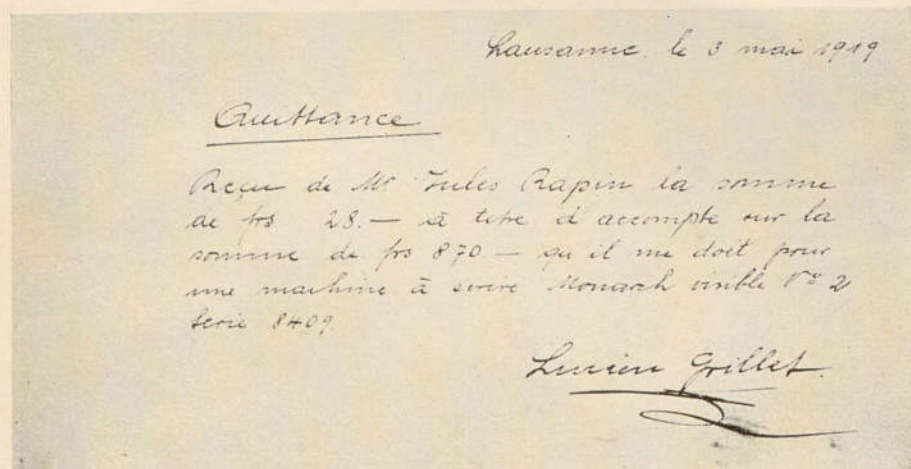 Lausanne, le 3 mai 1919
Quittance
Reçu de Mr Jules Rapin la somme
de frs 28.— à titre d'accompte sur la
somme de frs 870 — qu'il me doit pour
une machine à écrire Monarch visible No 2
Serie 8409.
Lucien Grillet.